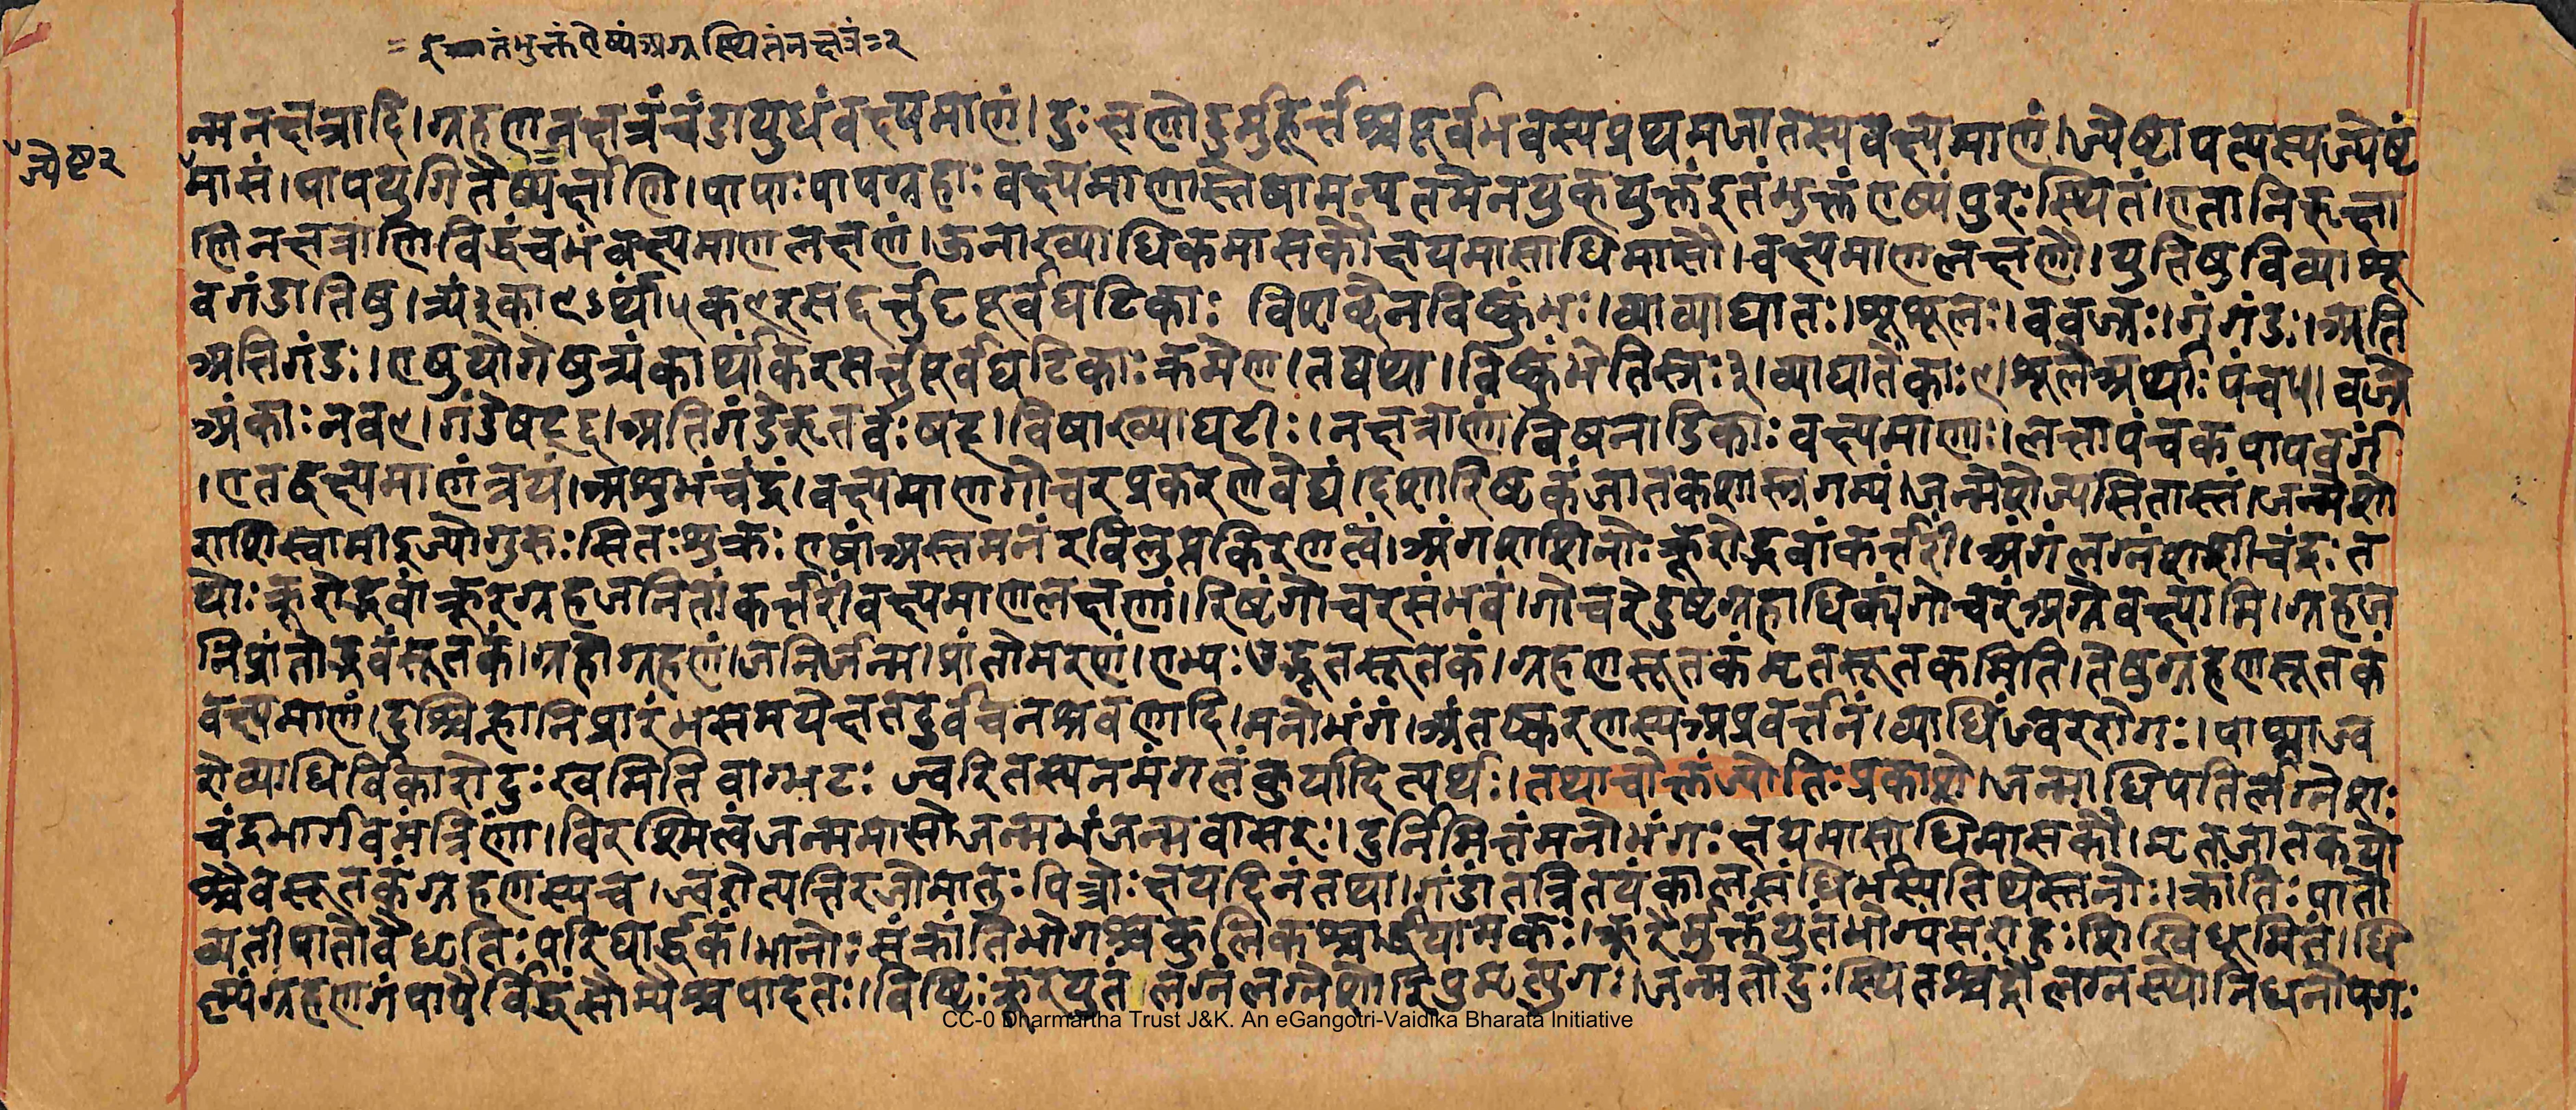 = इ तं भुक्तं एष्यं अग्रस्थितं नक्षत्रं = २
न्मनक्षत्रादि। ग्रहणनक्षत्रं चंडायुधं वक्ष्यमाणं। दुःक्षणो दुर्मुहूर्त्तश्च पूर्वभवस्य प्रथमजातस्य वक्ष्यमाणं। ज्येष्टापत्यस्य ज्येष्टं
ज्येष्ट २
मासं। पापयुगितैष्यर्क्षाणि। पापाः पापग्रहाः वक्ष्यमाणास्तेषामन्यतमेन युक् युक्तं इतं भुक्तं एष्यं पुरःस्थितं। एतानि ऋक्षा
णि नक्षत्राणि विद्धं च भं वक्ष्यमाणलक्षणं। ऊनाख्याधिकमासकौ क्षयमासाधिमासौ। वक्ष्यमाणलक्षणौ। युतिषु विव्याशू
वगंडातिषु। त्र्यं ३ का ९ ऽर्था ५ क ९ रस ६ र्त्तु ६ पूर्वघटिकाः विशब्देन विष्कुंभः। व्या व्याघातः। शू शूलः। व वज्रः। गं गंडः। अति
अतिगंडः। एषु योगेषु त्र्यंकार्थांकरसर्त्तुपूर्वघटिकाः क्रमेण। तद्यथा। विष्कुंभे तिस्रः ३। व्याघातेंकाः ९। शूले अर्थाः पंच ५। वज्रे
अंकाः नव ९। गंडे षट् ६। अतिगंडे ऋतवः षट्। विषाख्या घटीः। नक्षत्राणां विषनाडिकाः वक्ष्यमाणाः। लत्तापंचकपापवर्ग
। एतद्वक्ष्यमाणं त्रयं। अशुभं चंद्रं। वक्ष्यमाणगोचरप्रकरणे वेद्यं। दशारिष्टकं जातकशास्त्रगम्यं। जन्मेशेज्यसितास्तं। जन्मेशो
राशिस्वामी इज्यो गुरुः सितः शुक्रः एषां अस्तमनं रविलुप्तकिरणत्वं। अंगशशिनोः क्रूरोद्भवां कर्त्तरीं। अंगं लग्नं शशी चंद्रः त
योः क्रूरोद्भवां क्रूरग्रहजनितां कर्त्तरीं वक्ष्यमाणलक्षणां। रिष्टं गोचरसंभवं। गोचरे दुष्टग्रहाधिक्यं गोचरं अग्रे वक्ष्यामि। ग्रहज
निप्रांतोद्भवं सूतकं। ग्रहो ग्रहणं। जनिर्जन्म। प्रांतो मरणं। एभ्यः उद्भूतसूतकं। ग्रहणसूतकं मृतसूतकमिति। तेषु ग्रहणसूतकं
वक्ष्यमाणं। दुश्चिह्नानि प्रारंभसमये क्षतदुर्वचनश्रवणादि। मनोभंगं। अंतःकरणस्य अप्रवर्त्तनं। व्याधिं ज्वररोगः। पाप्मा ज्व
रो व्याधिर्विकारो दुःखमिति वाग्भटः ज्वरितस्य न मंगलं कुर्यादित्यर्थः। तथा चोक्तं ज्योतिःप्रकाशे। जन्माधिपतिर्लग्नेशः
चंद्रभार्गवमंत्रिणां। विरश्मित्वं जन्ममासो जन्मभं जन्मवासरः। दुर्निमित्तं मनोभंगः क्षयमासाधिमासकौ। मृतजातकयो
श्चैव सूतकं ग्रहणस्य च। ज्वरोत्पत्तिरजो मातुः पित्रोः क्षयदिनं तथा। गंडांतत्रितयं कालसंधिर्भस्य तिथेस्तनोः। क्रांतिः पातो
व्यतीपातो वैधृतिः परिघार्द्धकं। भानोः संक्रांतिभोगश्च कुलिकश्चार्द्धयामकः। क्रूरैर्मुक्तं युतं भोग्यं सराहुः शिखिधूमितं। धि
ष्ण्यं ग्रहणगं पापैर्विद्धं सौम्यैश्च पादतः। विष्टिः क्रूरयुतं लग्नं लग्नेशो रिपुमृत्युगः। जन्मतो दुःस्थितश्चंद्रो लग्नस्यो निधनोपगः
CC-0 Dharmartha Trust J&K. An eGangotri-Vaidika Bharata Initiative